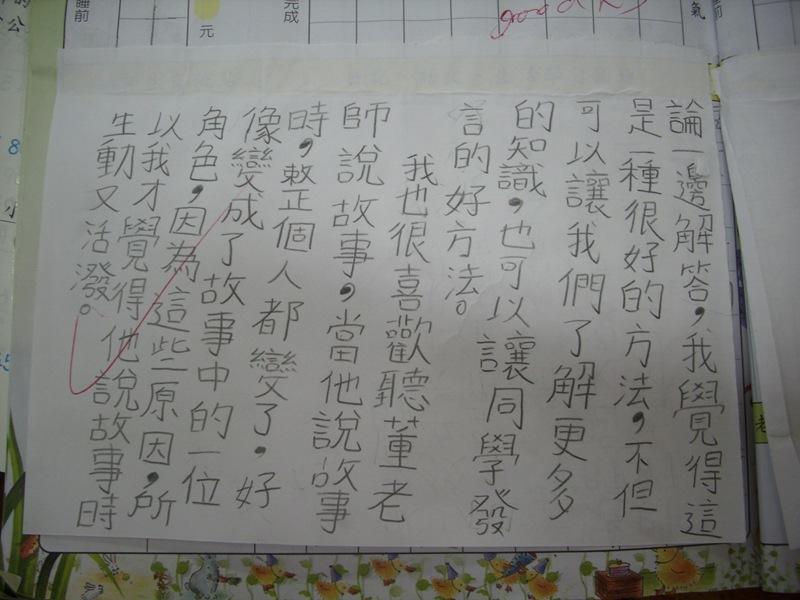 論一邊解答，我覺得這
是一種很好的方法，不但
可以讓我們了解更多
的知識，也可以讓同學發
言的好方法。
我也很喜歡聽董老
師說故事，當他說故事
時，整個人都變了，好
像變成了故事中的一位
角色，因為這些原因，所
以我才覺得他說故事時
生動又活潑。
good
完成
元
睡前
氣
小
8